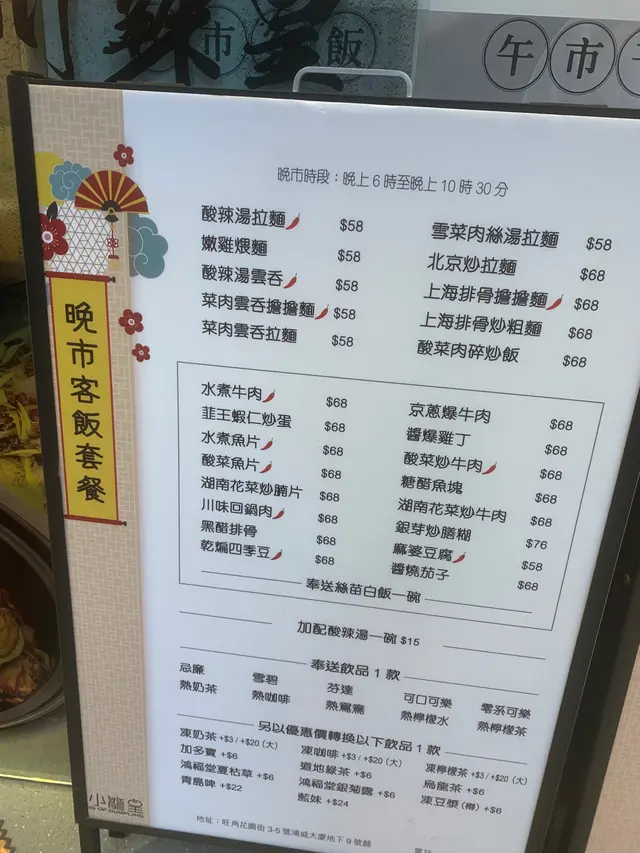 市
飯
午市
晚市時段：晚上 6 時至晚上 10 時 30 分
晚市客飯套餐
酸辣湯拉麵 $58
嫩雞煨麵 $58
酸辣湯雲吞 $58
菜肉雲吞擔擔麵 $58
菜肉雲吞拉麵 $58
雪菜肉絲湯拉麵 $58
北京炒拉麵 $68
上海排骨擔擔麵 $68
上海排骨炒粗麵 $68
酸菜肉碎炒飯 $68
水煮牛肉 $68
韮王蝦仁炒蛋 $68
水煮魚片 $68
酸菜魚片 $68
湖南花菜炒腩片 $68
川味回鍋肉 $68
黑醋排骨 $68
乾煸四季豆 $68
京蔥爆牛肉 $68
醬爆雞丁 $68
酸菜炒牛肉 $68
糖醋魚塊 $68
湖南花菜炒牛肉 $68
銀芽炒膳糊 $76
麻婆豆腐 $58
醬燒茄子 $68
奉送絲苗白飯一碗
加配酸辣湯一碗 $15
奉送飲品 1 款
忌廉 雪碧 芬達 可口可樂 零系可樂
熱奶茶 熱咖啡 熱鴛鴦 熱檸檬水 熱檸檬茶
另以優惠價轉換以下飲品 1 款
凍奶茶 +$3 / +$20 (大) 凍咖啡 +$3 / +$20 (大) 凍檸檬茶 +$3 / +$20 (大)
加多寶 +$6 道地綠茶 +$6 烏龍茶 +$6
鴻福堂夏枯草 +$6 鴻福堂銀菊露 +$6 凍豆漿 (樽) +$6
青島啤 +$22 藍妹 +$24
地址：旺角花園街 3-5 號鴻威大廈地下 9 號舖